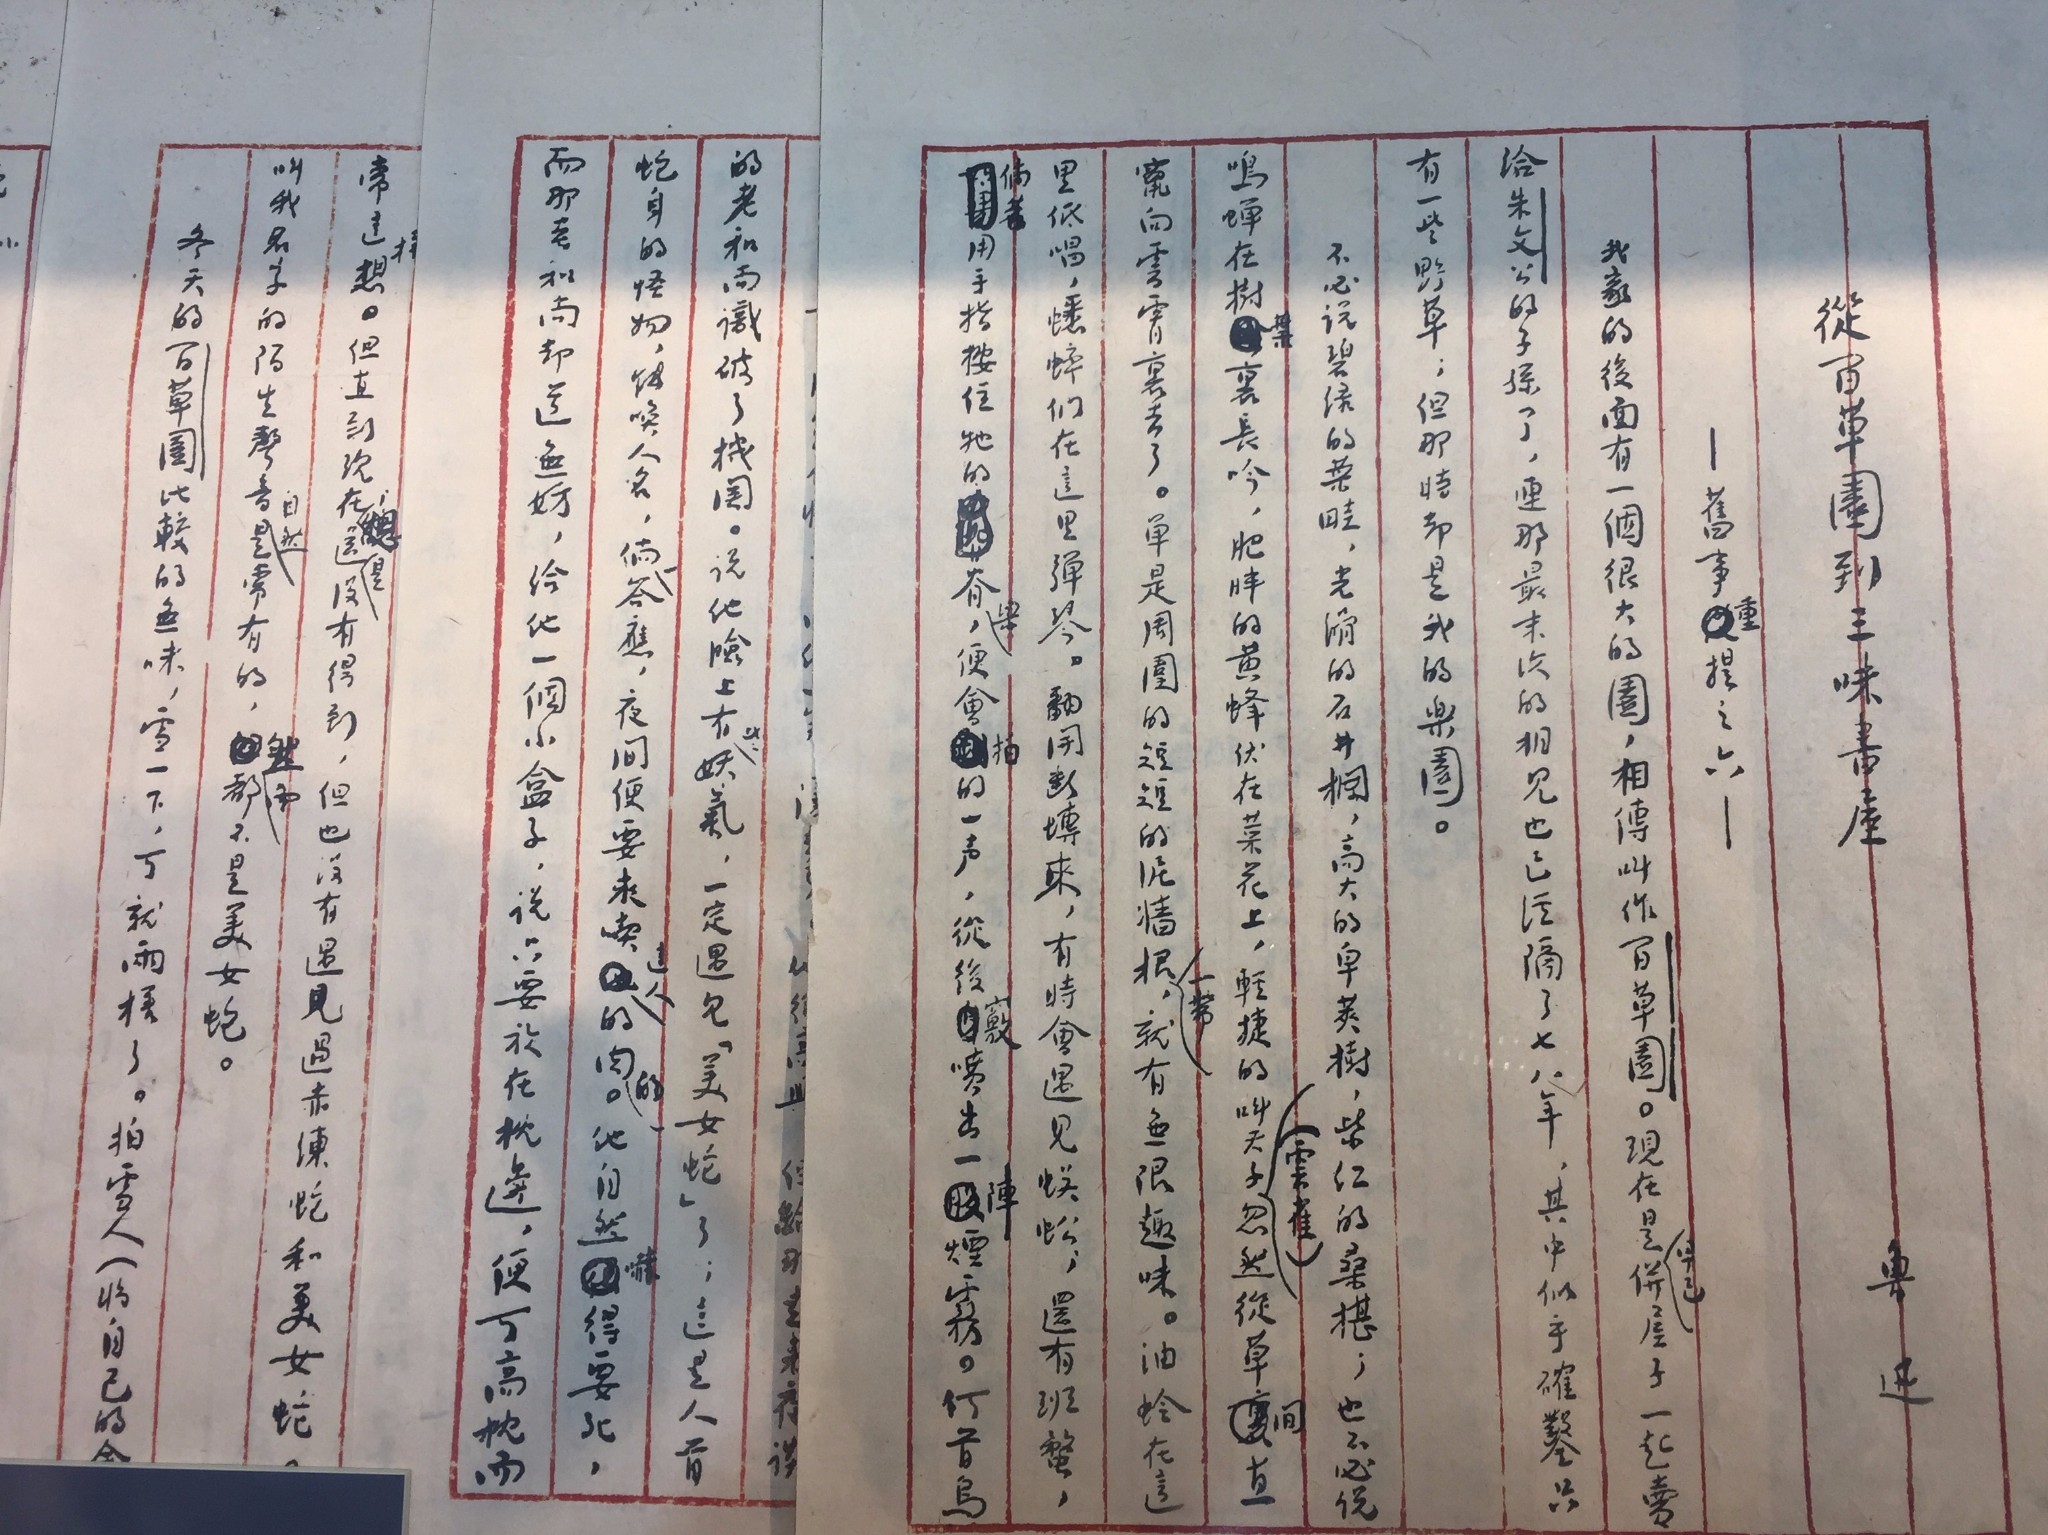 從百草園到三味書屋
魯迅
—舊事重提之六—
我家的後面有一個很大的園，相傳叫作百草園。現在是早已併屋子一起賣
給朱文公的子孫了，連那最末次的相見也已經隔了七八年，其中似乎確鑿只
有一些野草；但那時卻是我的樂園。
不必说碧綠的菜畦，光滑的石井欄，高大的皁莢樹，紫红的桑椹；也不必说
鳴蟬在樹葉裏長吟，肥胖的黄蜂伏在菜花上，輕捷的叫天子(雲雀)忽然從草間直
竄向雲霄裏去了。单是周圍的短短的泥墻根一帶，就有無限趣味。油蛉在這
里低唱，蟋蟀们在這里彈琴。翻開断塼來，有時會遇見蜈蚣；還有斑蝥，
倘若用手指按住牠的脊梁，便會拍的一声，從後竅噴出一陣煙霧。何首烏
的老和尚識破了機関。说他臉上有些妖氣，一定遇见「美女蛇」了；這是人首
蛇身的怪物，能唤人名，倘一答應，夜间便要來喫這人的肉的。他自然嚇得要死，
而那老和尚却道無妨，给他一個小盒子，说只要放在枕邊，便可高枕而
常這樣想。但直到现在，總是還没有得到，但也没有遇見過赤練蛇和美女蛇。
叫我名字的陌生聲音自然是常有的，然而都不是美女蛇。
冬天的百草園比較的無味，雪一下，可就兩樣了。拍雪人(将自己的全